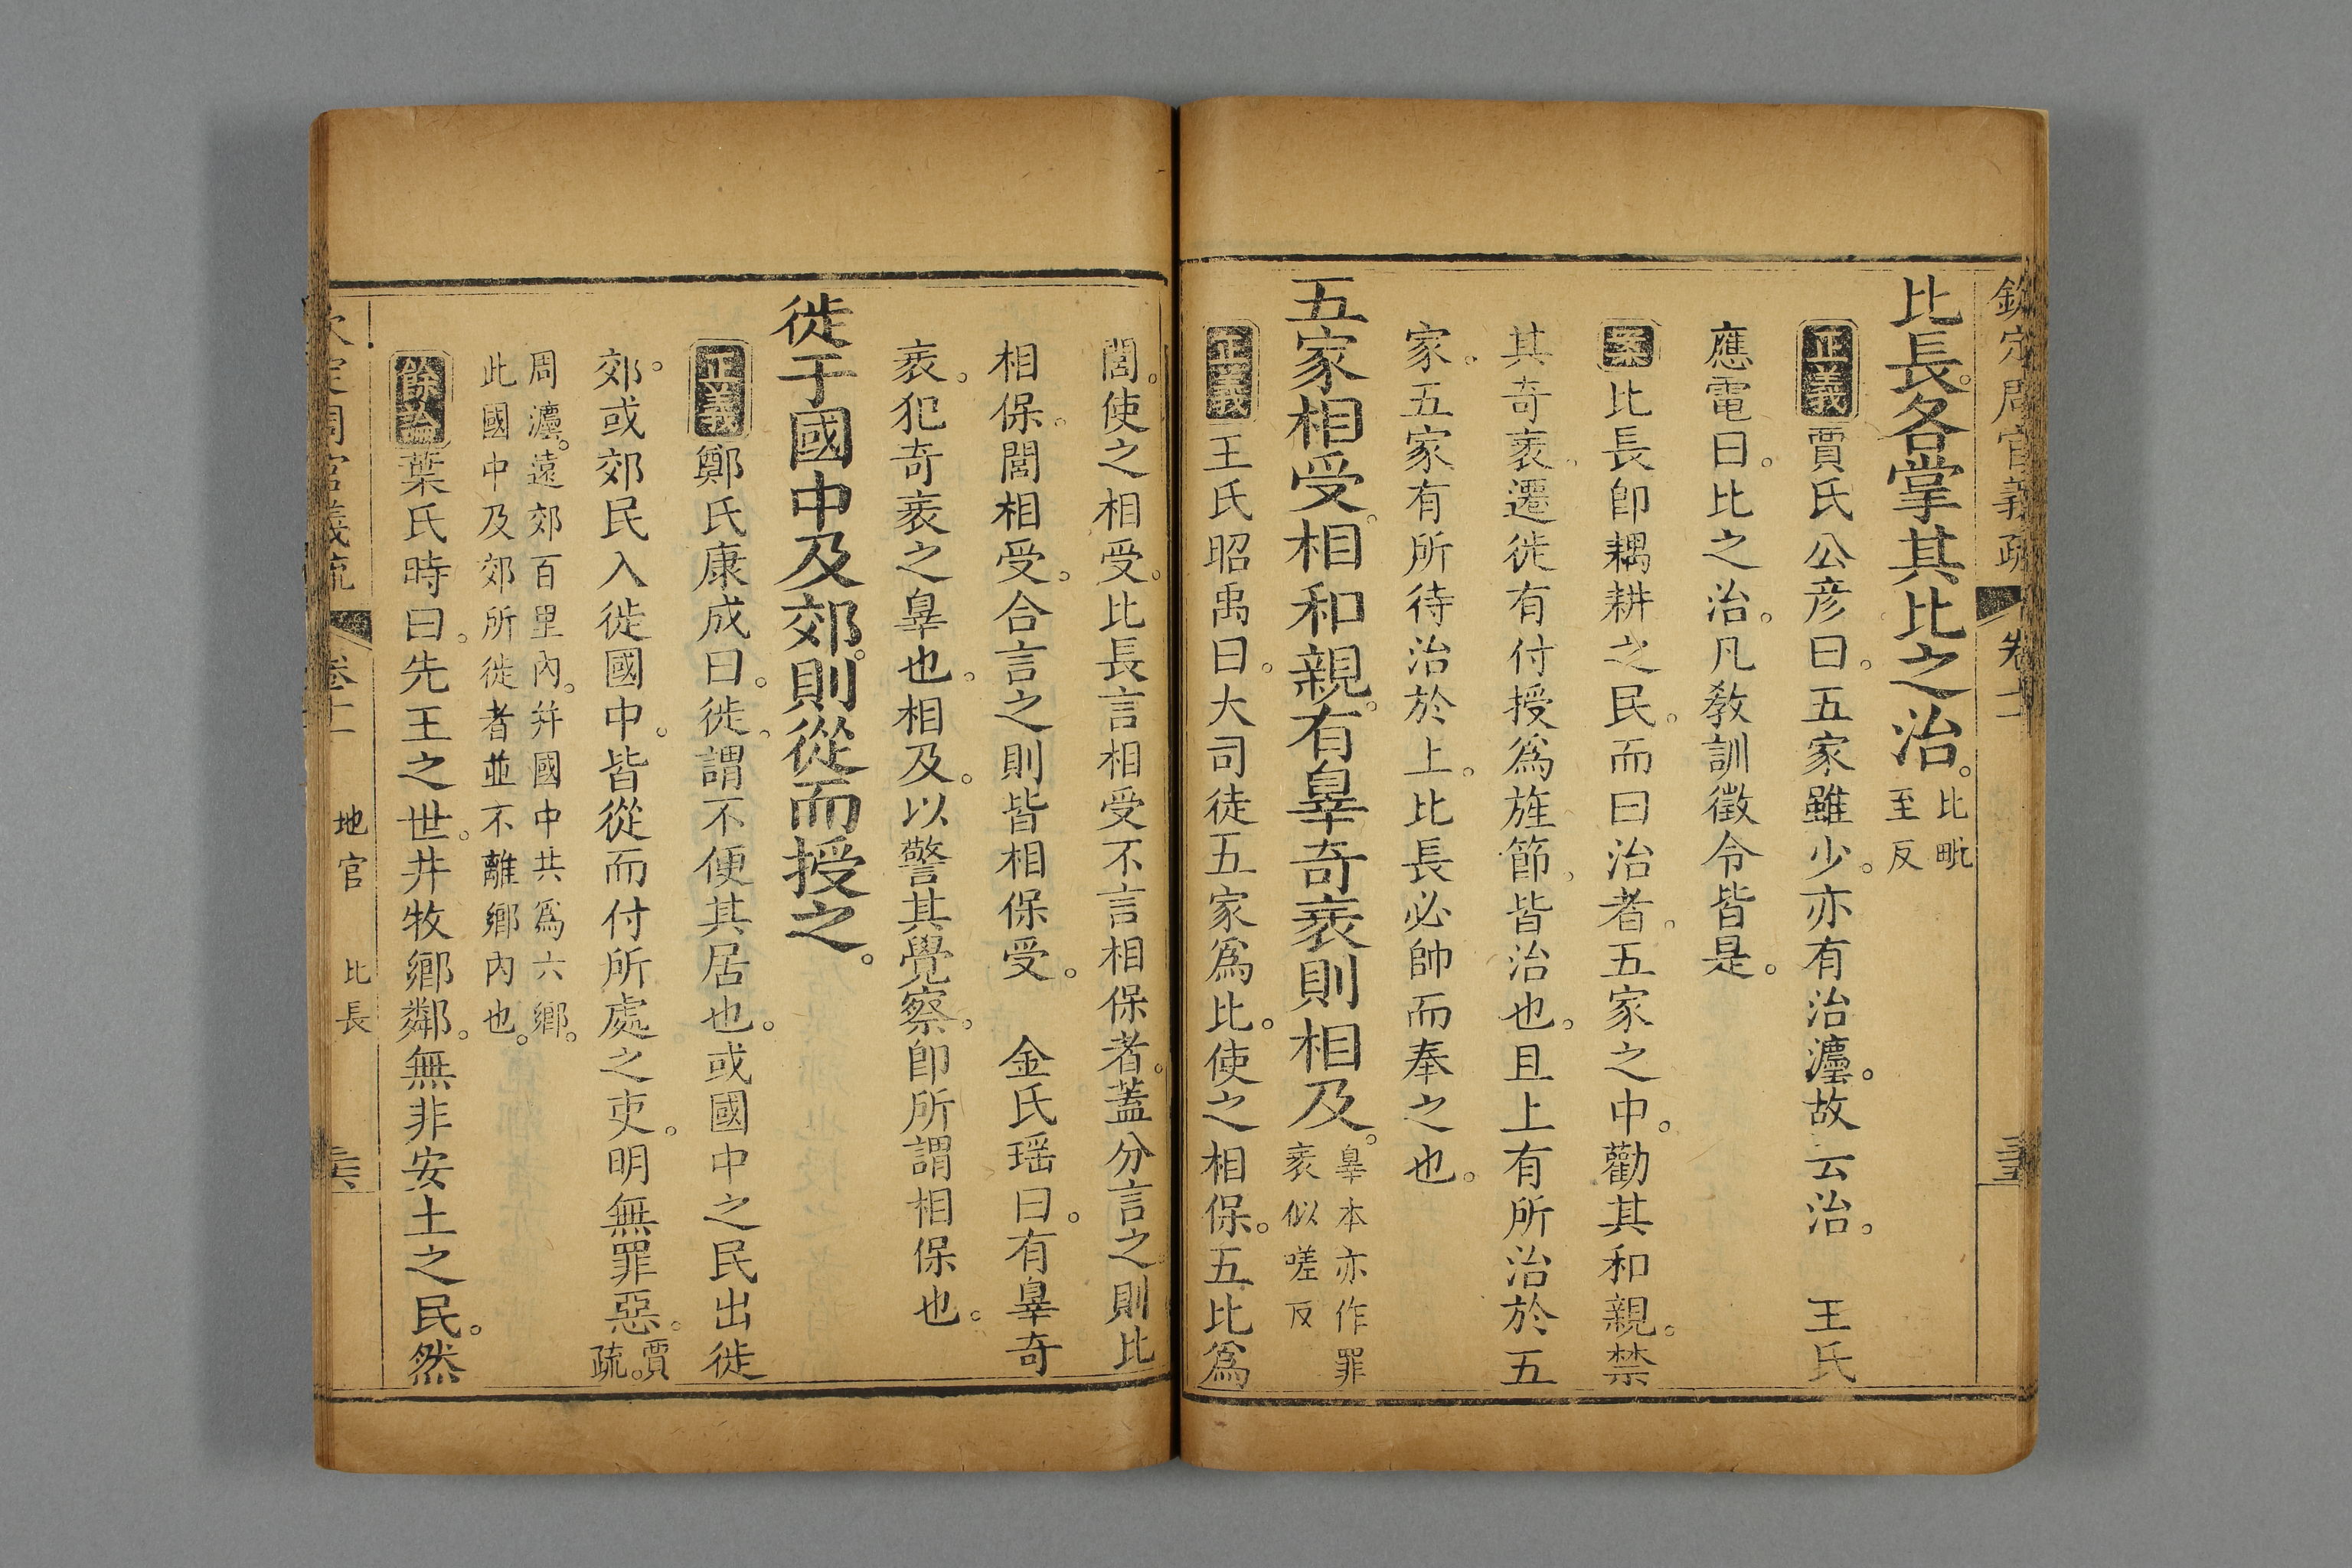 欽定周官義疏 卷十一 三五
比長。各掌其比之治。比毗至反
正義賈氏公彥曰。五家雖少。亦有治灋。故云治。 王氏
應電曰。比之治。凡教訓徵令皆是。
案比長卽耦耕之民。而曰治者。五家之中。勸其和親。禁
其奇衺。遷徙有付授爲旌節。皆治也。且上有所治於五
家。五家有所待治於上。比長必帥而奉之也。
五家相受。相和親。有辠奇衺則相及。辠本亦作罪衺似嗟反
正義王氏昭禹曰。大司徒五家爲比。使之相保。五比爲
閭。使之相受。比長言相受不言相保者。蓋分言之。則比
相保。閭相受。合言之則皆相保受。 金氏瑶曰。有辠奇
衺。犯奇衺之辠也。相及。以警其覺察。卽所謂相保也。
徙于國中及郊。則從而授之。
正義鄭氏康成曰。徙。謂不便其居也。或國中之民出徙
郊。或郊民入徙國中。皆從而付所處之吏。明無罪惡。賈疏。
周灋。遠郊百里內。幷國中共爲六鄉。
此國中及郊所徙者並不離鄉內也。
餘論葉氏時曰。先王之世。井牧鄉鄰。無非安土之民。然
欽定周官義疏 卷十一 地官 比長 三六